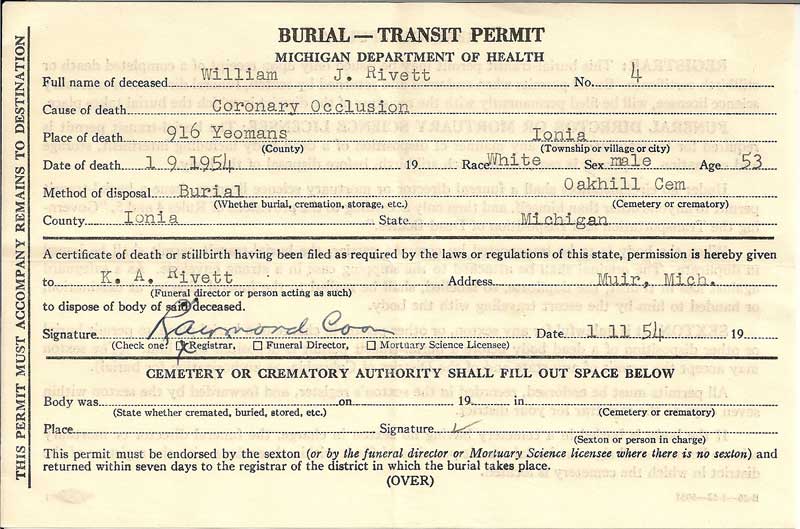 BURIAL — TRANSIT PERMIT
MICHIGAN DEPARTMENT OF HEALTH
Full name of deceased William J. Rivett No. 4
Cause of death Coronary Occlusion
Place of death 916 Yeomans Ionia
(County) (Township or village or city)
Date of death 1 9 1954 19 Race White Sex male Age 53
Method of disposal Burial Oakhill Cem
(Whether burial, cremation, storage, etc.) (Cemetery or crematory)
County Ionia State Michigan
A certificate of death or stillbirth having been filed as required by the laws or regulations of this state, permission is hereby given
to K. A. Rivett Address Muir, Mich.
(Funeral director or person acting as such)
to dispose of body of said deceased.
Signature Raymond Coon Date 1 11 54 19
(Check one: X Registrar, ☐ Funeral Director, ☐ Mortuary Science Licensee)
CEMETERY OR CREMATORY AUTHORITY SHALL FILL OUT SPACE BELOW
Body was on 19 in
(State whether cremated, buried, stored, etc.) (Cemetery or crematory)
Place Signature ✓
(Sexton or person in charge)
This permit must be endorsed by the sexton (or by the funeral director or Mortuary Science licensee where there is no sexton) and
returned within seven days to the registrar of the district in which the burial takes place.
(OVER)
THIS PERMIT MUST ACCOMPANY REMAINS TO DESTINATION